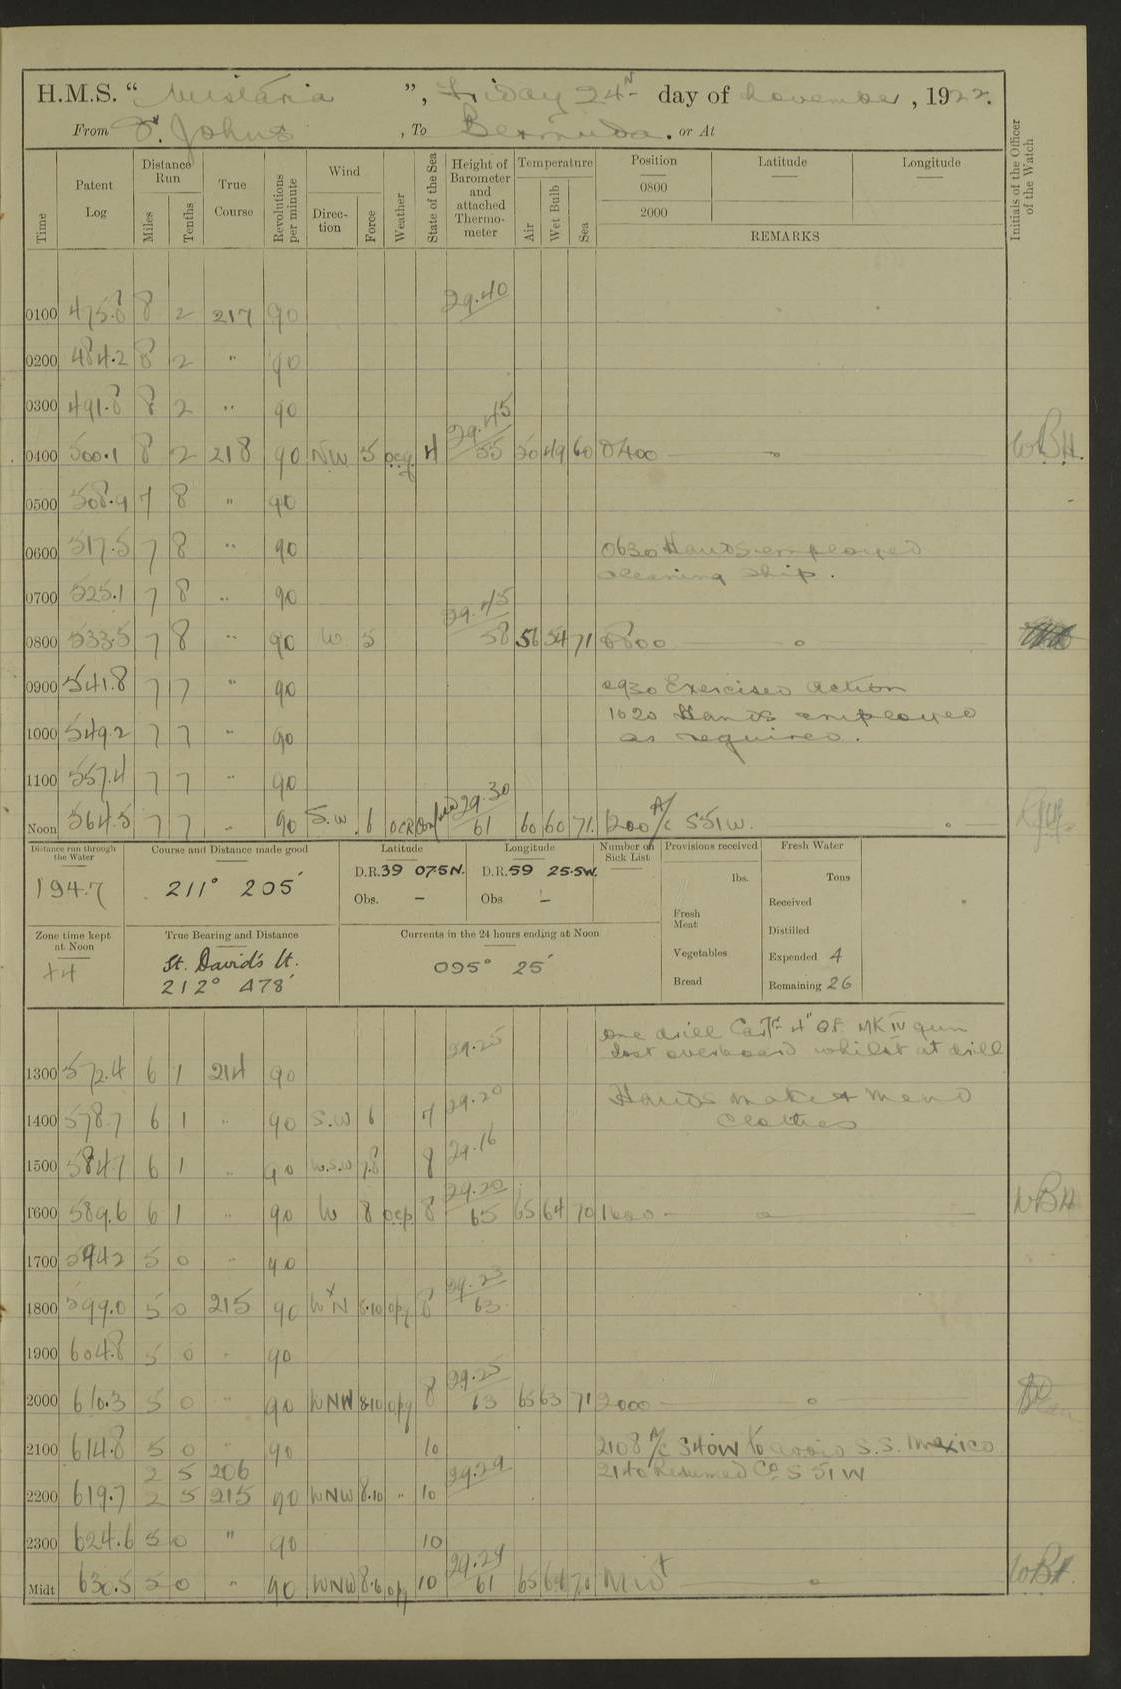 H.M.S. " Wistaria ", Friday 24th day of November, 1922.
From St. Johns, To Bermuda. or At
Time Patent Log Distance Run Miles Tenths True Course Revolutions per minute Wind Direction Force Weather State of the Sea Height of Barometer and attached Thermometer Temperature Air Wet Bulb Sea Position 0800 2000 Latitude Longitude REMARKS Initials of the Officer of the Watch
29.40
0100 475.8 8 2 217 90
0200 484.2 8 2 " 90
0300 491.8 8 2 " 90
29.45
0400 500.1 8 2 218 90 NW 5 ocq 4 55 50 49 60 0400 WBH.
0500 508.4 7 8 " 90
0600 517.5 7 8 " 90 0630 Hands employed
cleaning ship.
0700 525.1 7 8 " 90
29.45
0800 533.5 7 8 " 90 W 5 58 56 54 71 0800
0900 541.8 7 7 " 90 0930 Exercised action
1020 Hands employed
1000 549.2 7 7 " 90 as required.
1100 557.4 7 7 " 90
29.30
Noon 564.5 7 7 " 90 S.W 6 OCR 61 60 60 71. 1200 A/c S51W.
Distance run through the Water Course and Distance made good Latitude Longitude Number on Sick List Provisions received Fresh Water
194.7 211° 205' D.R. 39 07.5N. D.R. 59 25.5W. lbs. Tons
Obs. - Obs -
Received
Fresh Meat
Distilled
Zone time kept at Noon True Bearing and Distance Currents in the 24 hours ending at Noon
+4 St. David's Lt. 095° 25' Vegetables Expended 4
212° 478' Bread Remaining 26
one drill Cartge 4" QF MK IV gun
29.25 lost overboard whilst at drill
1300 572.4 6 1 214 90
29.20 Hands make & mend
1400 578.7 6 1 " 90 S.W 6 7 clothes
29.16
1500 584.7 6 1 " 90 W.S.W 7.8 8
29.20
1600 589.6 6 1 " 90 W 8 ocp 8 65 65 64 70 1600 WBH
1700 594.2 5 0 " 90
29.23
1800 599.0 5 0 215 90 WxN 8.10 opq 8 63
1900 604.8 5 0 " 90
29.25
2000 610.3 5 0 " 90 WNW 8.10 opq 8 63 65 63 71 2000
2100 614.8 5 0 " 90 10 2108 A/c S40W to avoid S.S. Mexico
2 5 206 29.29 2140 Resumed Co S 51 W
2200 619.7 2 5 215 90 WNW 8.10 " 10
2300 624.6 5 0 " 90 10
29.29
Midt 630.5 5 0 " 90 WNW opq 10 61 65 64 70 Midt WBH.